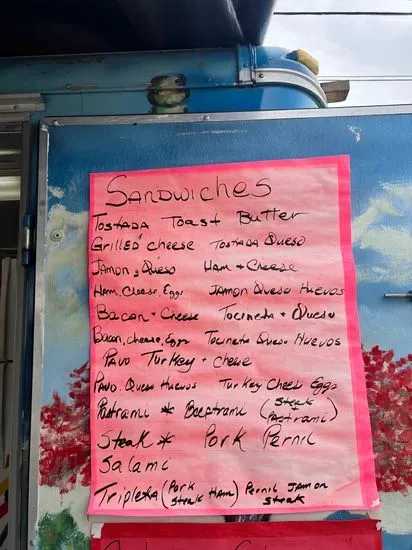 SANDWICHES
TOSTADA TOAST BUTTER
GRILLED CHEESE TOSTADA QUESO
JAMON & QUESO HAM + CHEESE
HAM, CHEESE, EGGS JAMON QUESO HUEVOS
BACON + CHEESE TOCINETA + QUESO
BACON, CHEESE, EGGS TOCINETA QUESO HUEVOS
PAVO TURKEY + CHEESE
PAVO. QUESO HUEVOS TURKEY CHEES EGGS
PASTRAMI * (STEAK + PASTRAMI)
STEAK * PORK PERNIL
SALAMI
TRIPLETA (PORK STEAK HAM) PERNIL JAMON STEAK